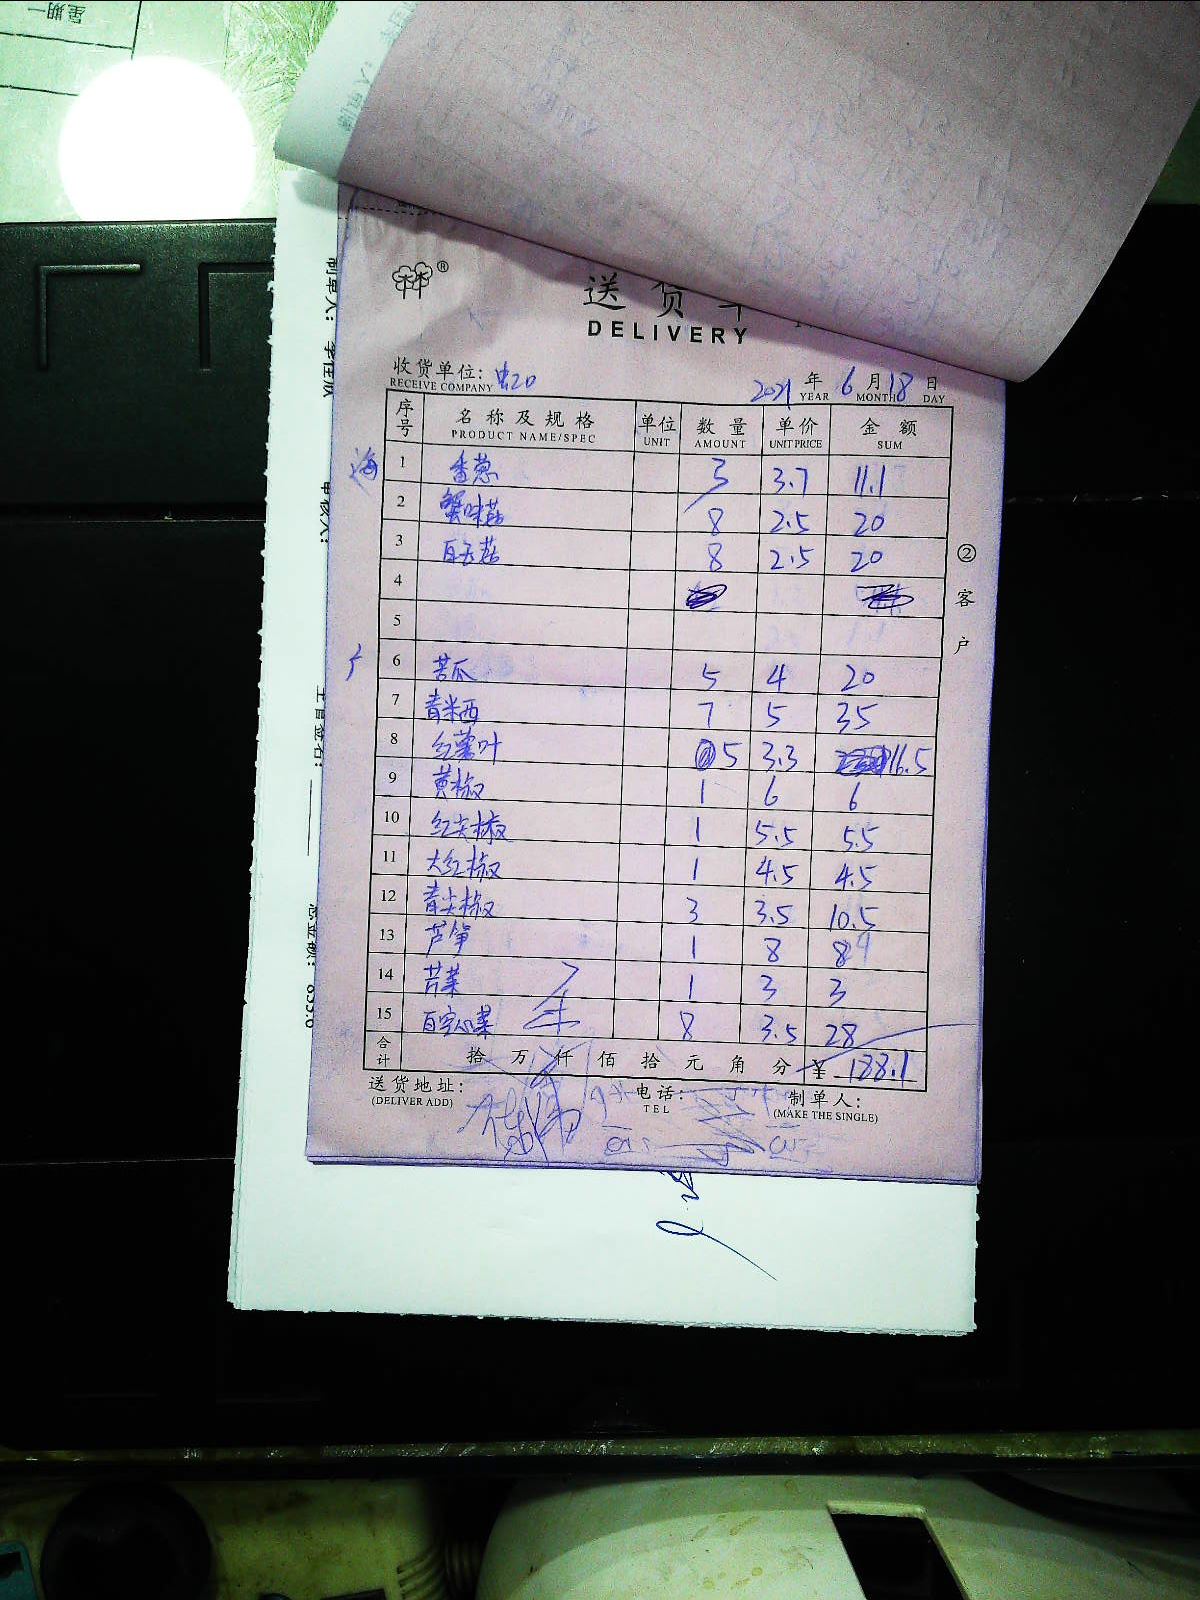 星期一
®
送货单
DELIVERY
收货单位: 虫20
RECEIVE COMPANY
2021 年 6 月 18 日
YEAR MONTH DAY
序号 名称及规格 单位 数量 单价 金额
PRODUCT NAME/SPEC UNIT AMOUNT UNIT PRICE SUM
海 1 香葱 3 3.7 11.1
2 蟹味菇 8 2.5 20
3 白玉菇 8 2.5 20
4
5
6 苦瓜 5 4 20
7 青米西 7 5 35
8 红薯叶 5 3.3 16.5
9 黄椒 1 6 6
10 红尖椒 1 5.5 5.5
11 大红椒 1 4.5 4.5
12 青尖椒 3 3.5 10.5
13 芦笋 1 8 8
14 苦菜 1 3 3
15 百空心菜 8 3.5 28
合计 拾 万 仟 佰 拾 元 角 分 ¥ 188.1
送货地址: 电话: 制单人:
(DELIVER ADD) TEL (MAKE THE SINGLE)
②客户
制单人:
审核人:
主管签名:
总金额: